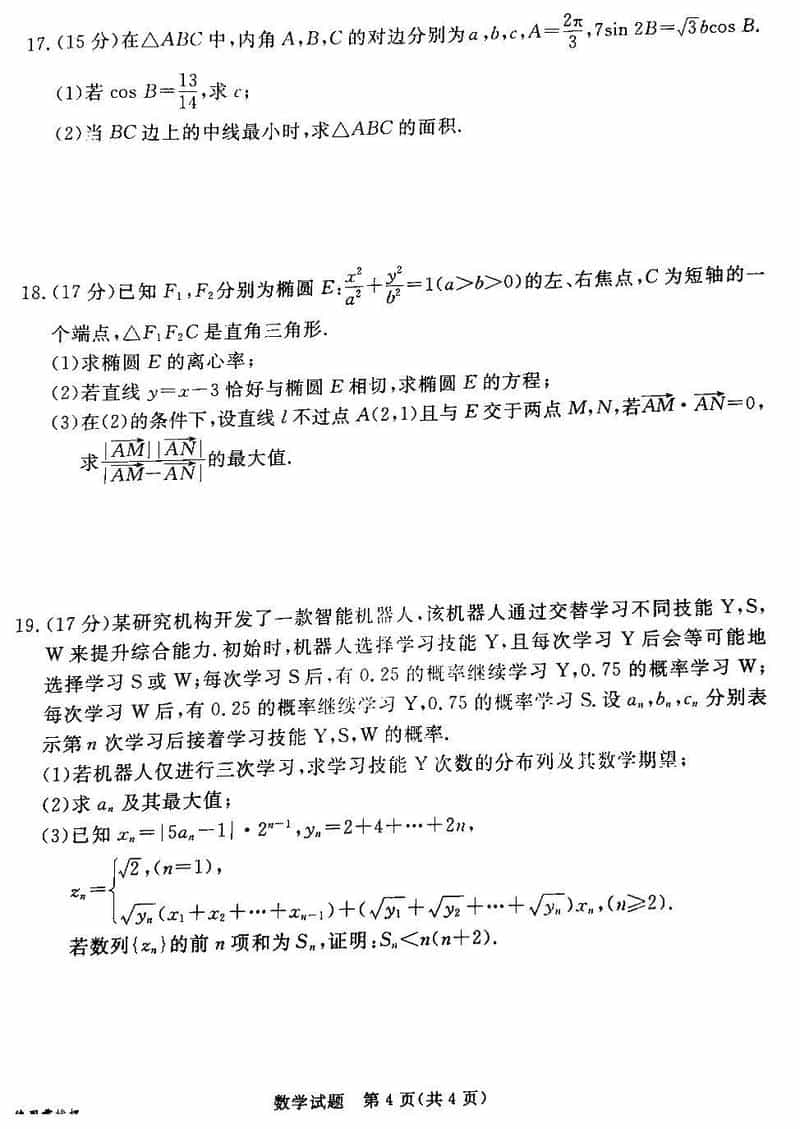 17.(15 分)在△ABC 中,内角 A,B,C 的对边分别为 a,b,c,A=2π/3,7sin 2B=√3bcos B.
(1)若 cos B=13/14,求 c;
(2)当 BC 边上的中线最小时,求△ABC 的面积.
18.(17 分)已知 F₁,F₂分别为椭圆 E:x²/a²+y²/b²=1(a>b>0)的左、右焦点,C 为短轴的一
个端点,△F₁F₂C 是直角三角形.
(1)求椭圆 E 的离心率;
(2)若直线 y=x-3 恰好与椭圆 E 相切,求椭圆 E 的方程;
(3)在(2)的条件下,设直线 l 不过点 A(2,1)且与 E 交于两点 M,N,若AM→·AN→=0,
求|AM→||AN→|/|AM→-AN→|的最大值.
19.(17 分)某研究机构开发了一款智能机器人.该机器人通过交替学习不同技能 Y,S,
W 来提升综合能力.初始时,机器人选择学习技能 Y,且每次学习 Y 后会等可能地
选择学习 S 或 W;每次学习 S 后,有 0.25 的概率继续学习 Y,0.75 的概率学习 W;
每次学习 W 后,有 0.25 的概率继续学习 Y,0.75 的概率学习 S.设 aₙ,bₙ,cₙ 分别表
示第 n 次学习后接着学习技能 Y,S,W 的概率.
(1)若机器人仅进行三次学习,求学习技能 Y 次数的分布列及其数学期望;
(2)求 aₙ 及其最大值;
(3)已知 xₙ=|5aₙ-1|·2ⁿ⁻¹,yₙ=2+4+⋯+2n,
zₙ={√2,(n=1),
√yₙ(x₁+x₂+⋯+xₙ₋₁)+(√y₁+√y₂+⋯+√yₙ)xₙ,(n≥2).
若数列{zₙ}的前 n 项和为 Sₙ,证明:Sₙ<n(n+2).
数学试题 第 4 页(共 4 页)